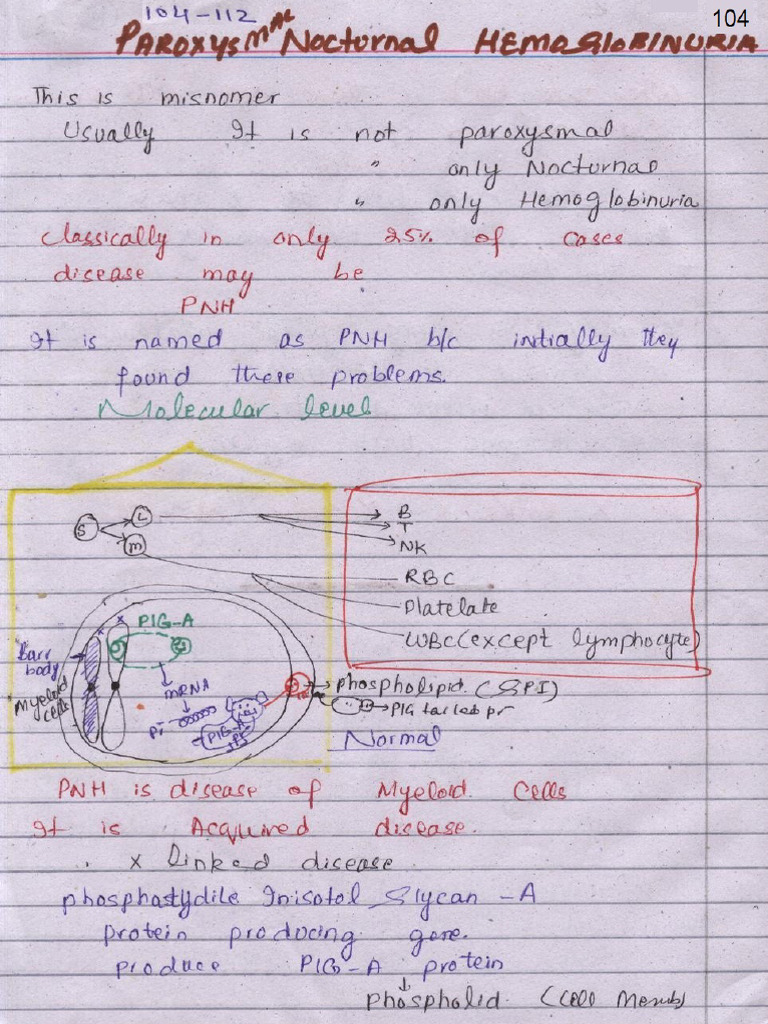 104-112
104
PAROXYSMAL NOCTURNAL HEMOGLOBINURIA
This is misnomer
Usually It is not paroxysmal
" only Nocturnal
" only Hemoglobinuria
Classically in only 25% of cases
disease may be
PNH
It is named as PNH b/c initially they
found these problems.
Molecular level
S
L
M
B
T
NK
RBC
Platelate
WBC (except lymphocyte)
X X
PIG-A
Barr body
Myeloid cells
mRNA
Pr
PIG-A
Pr
Phospholipid. (GPI)
PIG tailed pr
Normal
PNH is disease of Myeloid Cells
It is Acquired disease.
X Linked disease
phosphastydile Inisotol Glycan -A
protein producing gene.
produce PIG-A protein
Phospholid. (Cell Memb)